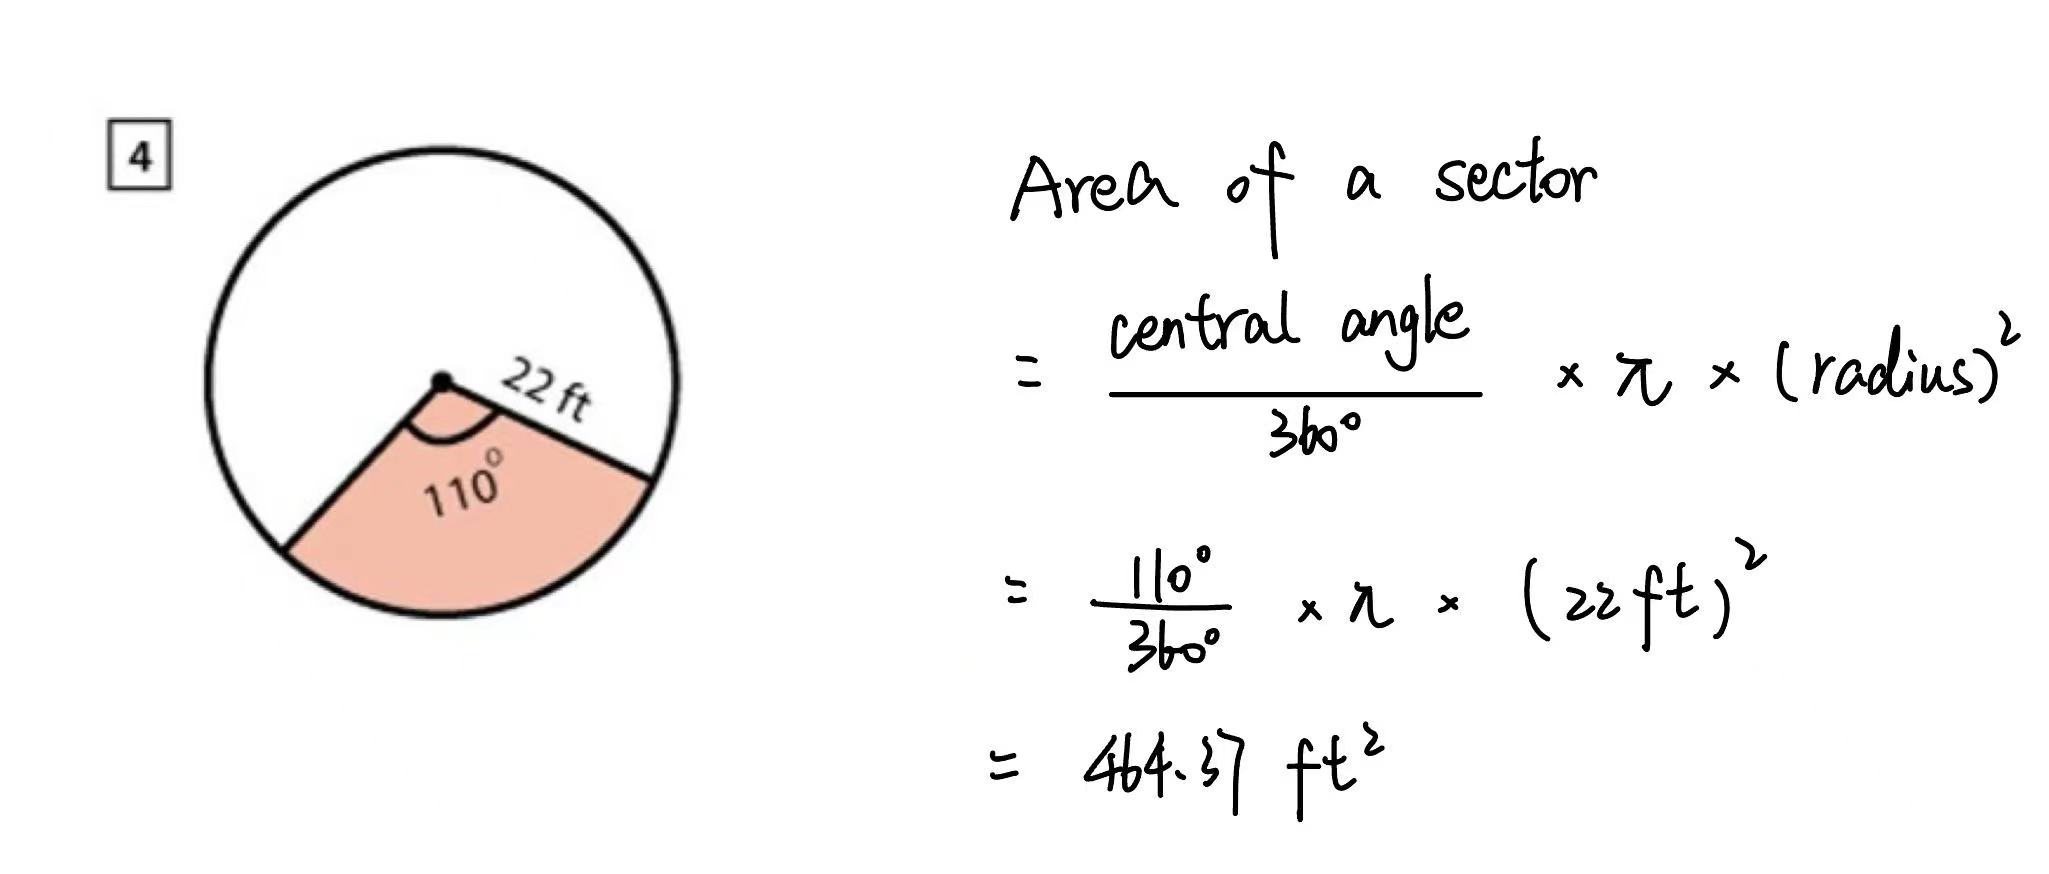 4
22 ft
110°
Area of a sector
= central angle / 360° × π × (radius)²
= 110° / 360° × π × (22 ft)²
= 464.37 ft²